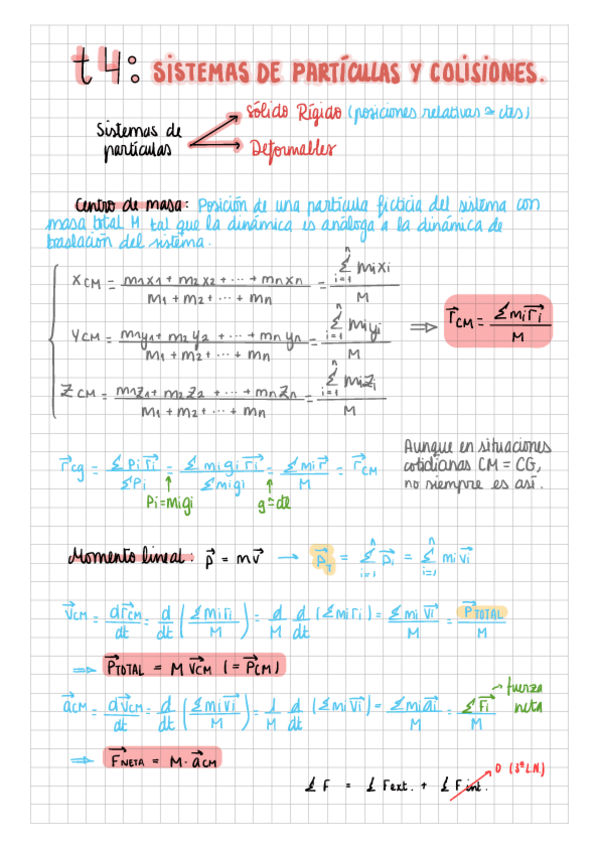 t4: SISTEMAS DE PARTÍCULAS Y COLISIONES.
Sistemas de partículas
Sólido Rígido (posiciones relativas ≃ ctes)
Deformables
Centro de masa: Posición de una partícula ficticia del sistema con
masa total M tal que la dinámica es análoga a la dinámica de
traslación del sistema.
X CM = m1x1 + m2x2 + ··· + mnxn / m1 + m2 + ··· + mn = Σ i=1 n mixi / M
Y CM = m1y1 + m2y2 + ··· + mnyn / m1 + m2 + ··· + mn = Σ i=1 n miyi / M ⟹ r⃗CM = Σ mir⃗i / M
Z CM = m1z1 + m2z2 + ··· + mnzn / m1 + m2 + ··· + mn = Σ i=1 n mizi / M
r⃗cg = Σ Pi r⃗i / ΣPi = Σ migi r⃗i / Σmigi = Σmir⃗ / M = r⃗CM
Pi=migi
g≃cte
Aunque en situaciones
cotidianas CM = CG,
no siempre es así.
Momento lineal: p⃗ = mv⃗ → p⃗T = Σ i=1 n p⃗i = Σ i=1 n miv⃗i
v⃗CM = dr⃗CM / dt = d/dt (Σmiri / M) = d/M d/dt (Σmiri) = Σmiv⃗i / M = P⃗TOTAL / M
⟹ P⃗TOTAL = M v⃗CM (= P⃗CM)
a⃗CM = dv⃗CM / dt = d/dt (Σmiv⃗i / M) = 1/M d/dt (Σmiv⃗i) = Σmia⃗i / M = ΣF⃗i / M
fuerza
neta
⟹ F⃗NETA = M · a⃗CM
Σ F = Σ Fext. + Σ Fint.
0 (3ªL.N.)